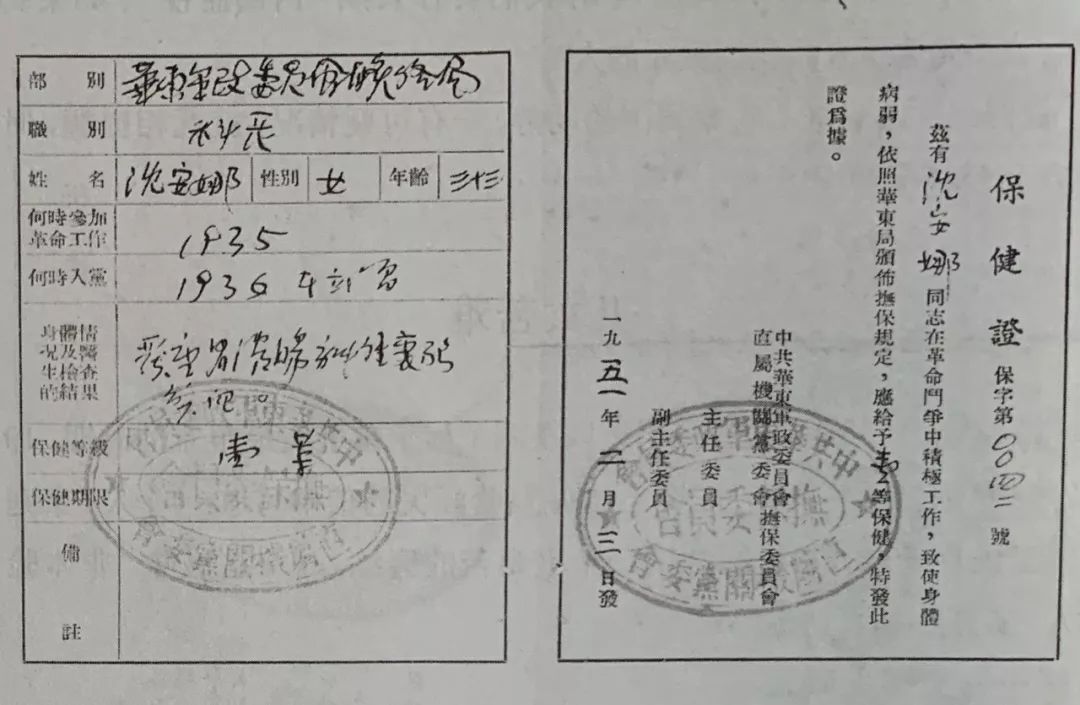 部別 華東軍政委員會
職別 科長
姓名 沈安娜 性別 女 年齡 三十三
何時參加革命工作 1935
何時入黨 1936年
身體情况及醫生檢查的結果
保健等級 壹等
保健期限
備註
保健證 保字第〇〇四二號
茲有沈安娜同志在革命鬥爭中積極工作，致使身體
病弱，依照華東局頒佈撫保規定，應給予壹等保健，特發此
證爲據。
中共華東軍政委員會
直屬機關黨委會撫保委員會
主任委員
副主任委員
一九五一年二月三日發